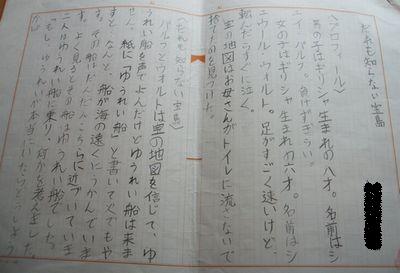 だれも知らない宝島
〈プロフィール〉
男の子はギリシャ生まれの八才。名前はシ
エイ・バルフ　負けずぎらい。
女の子はギリシャ生まれの六才。名前はシ
エウール・ウォルト。足がすごく速いけど、
転んだらすぐに泣く。
宝の地図はお母さんがトイレに流さないで
捨てたのを見つけた。
〈だれも知らない宝島〉
バルフとウォルトは宝の地図を信じて、ゆ
うれい船を声でよんだけどゆうれい船は来ま
せん。紙に「ゆうれい船」と書いてくでもや
すと、なんと、船が海の遠くにうかんでいま
す。その船はだんだんこちらに近づいていま
す。よく見るとその船はゆうれい船でした。
二人はゆうれい船に乗り、
「もし、ゆうれいが本当にいたらどうしよう